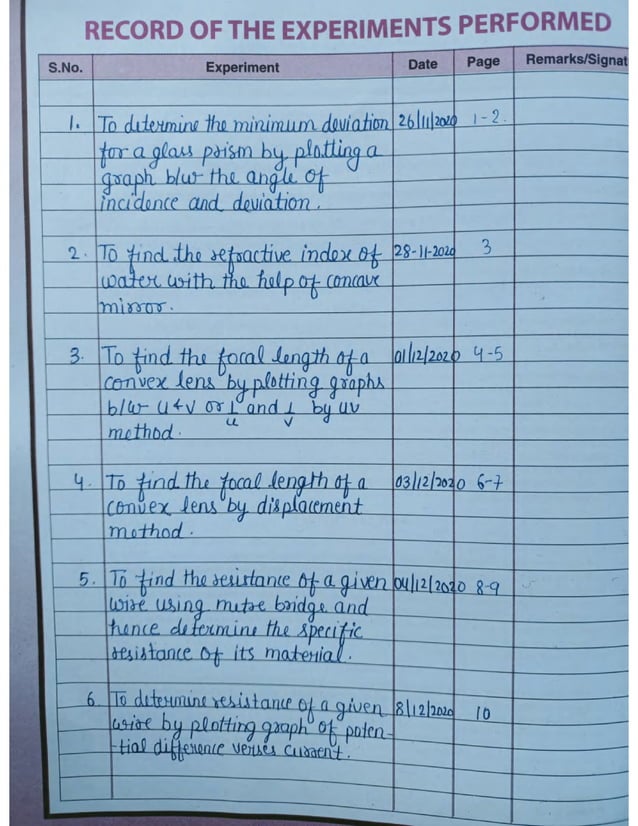 RECORD OF THE EXPERIMENTS PERFORMED
S.No. Experiment Date Page Remarks/Signat
1. To determine the minimum deviation 26/11/2020 1-2.
for a glass prism by plotting a
graph b/w the angle of
incidence and deviation.
2. To find the refractive index of 28-11-2020 3
water with the help of concave
mirror.
3. To find the focal length of a 01/12/2020 4-5
convex lens by plotting graphs
b/w u & v or 1/u and 1/v by uv
method.
4. To find the focal length of a 03/12/2020 6-7
convex lens by displacement
method.
5. To find the resistance of a given 04/12/2020 8-9
wire using metre bridge and
hence determine the specific
resistance of its material.
6. To determine resistance of a given 8/12/2020 10
wire by plotting graph of poten-
-tial difference verses current.